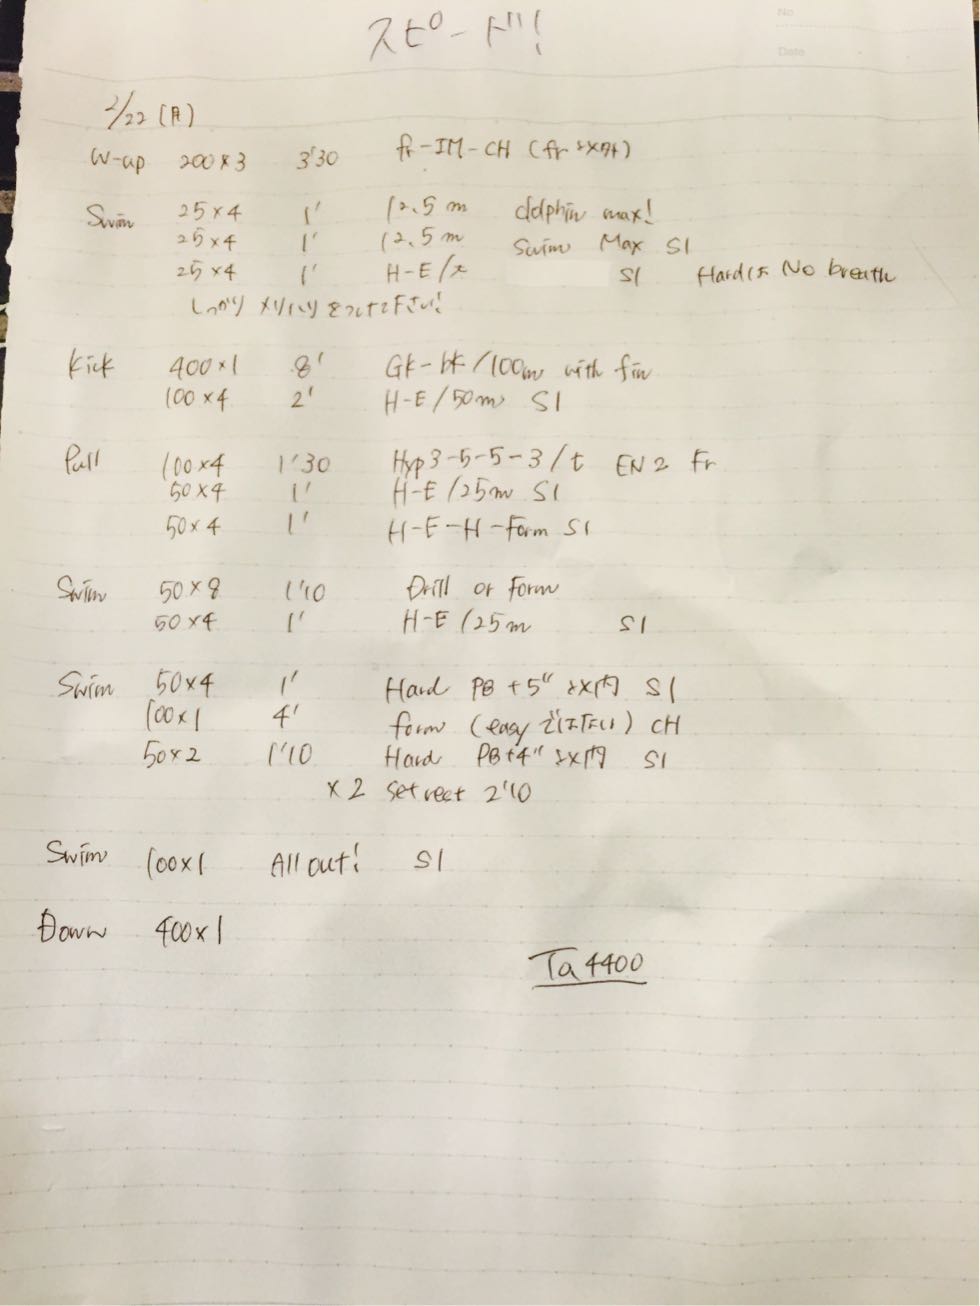 スピード!
No.
Date
2/22 (月)
W-up 200×3 3'30 fr-IM-CH (fr以外)
Swim 25×4 1' 12.5m dolphin max!
25×4 1' 12.5m Swim Max S1
25×4 1' H-E/t S1 Hardは No breath
しっかり メリハリをつけて下さい!
Kick 400×1 8' Gk-bk/100m with fin
100×4 2' H-E/50m S1
Pull 100×4 1'30 Hyp3-5-5-3/t EN2 Fr
50×4 1' H-E/25m S1
50×4 1' H-E-H-Form S1
Swim 50×8 1'10 Drill or Form
50×4 1' H-E/25m S1
Swim 50×4 1' Hard PB+5" 以内 S1
100×1 4' form (easyではない) CH
50×2 1'10 Hard PB+4" 以内 S1
×2 set rest 2'10
Swim 100×1 All out! S1
Down 400×1
Ta 4400